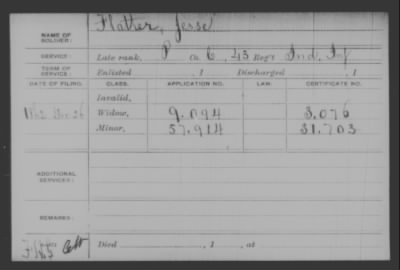 NAME OF SOLDIER: Flatter, Jesse
SERVICE: Late rank, P Co. C, 43 Reg't Ind. Inf
TERM OF SERVICE: Enlisted , 1 Discharged , 1
DATE OF FILING. CLASS. APPLICATION NO. LAW. CERTIFICATE NO.
Invalid,
1862 Widow, 9.094 3.076
Minor, 57.914 31.703
ADDITIONAL SERVICES:
REMARKS:
Died , 1 , at